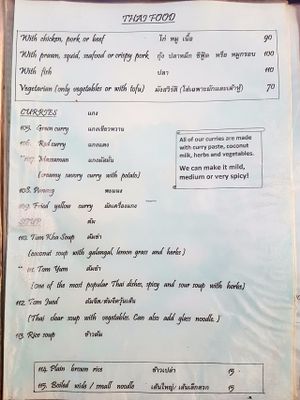 THAI FOOD
With chicken, pork or beef ไก่ หมู เนื้อ 90
With prawn, squid, seafood or crispy pork กุ้ง ปลาหมึก ซีฟู๊ด หรือ หมูกรอบ 100
With fish ปลา 110
Vegetarian (only vegetables or with tofu) มังสวิรัติ (ใส่เฉพาะผักและเต้าหู้) 70
CURRIES แกง
105. Green curry แกงเขียวหวาน
106. Red curry แกงแดง
107. Massaman แกงมัสมั่น
(creamy savory curry with potato)
108. Panang พะแนง
109. Fried yellow curry ผัดเครื่องแกง
All of our curries are made
with curry paste, coconut
milk, herbs and vegetables.
We can make it mild,
medium or very spicy!
SOUP ต้ม
110. Tom Kha Soup ต้มข่า
(coconut soup with galangal, lemon grass and herbs)
111. Tom Yum ต้มยำ
(one of the most popular Thai dishes, spicy and sour soup with herbs)
112. Tom Jued ต้มจืด/ต้มจืดวุ้นเส้น
(Thai clear soup with vegetables. Can also add glass noodle.)
113. Rice soup ข้าวต้ม
114. Plain brown rice ข้าวเปล่า 15
115. Boiled wide / small noodle เส้นใหญ่/ เส้นเล็กลวก 15